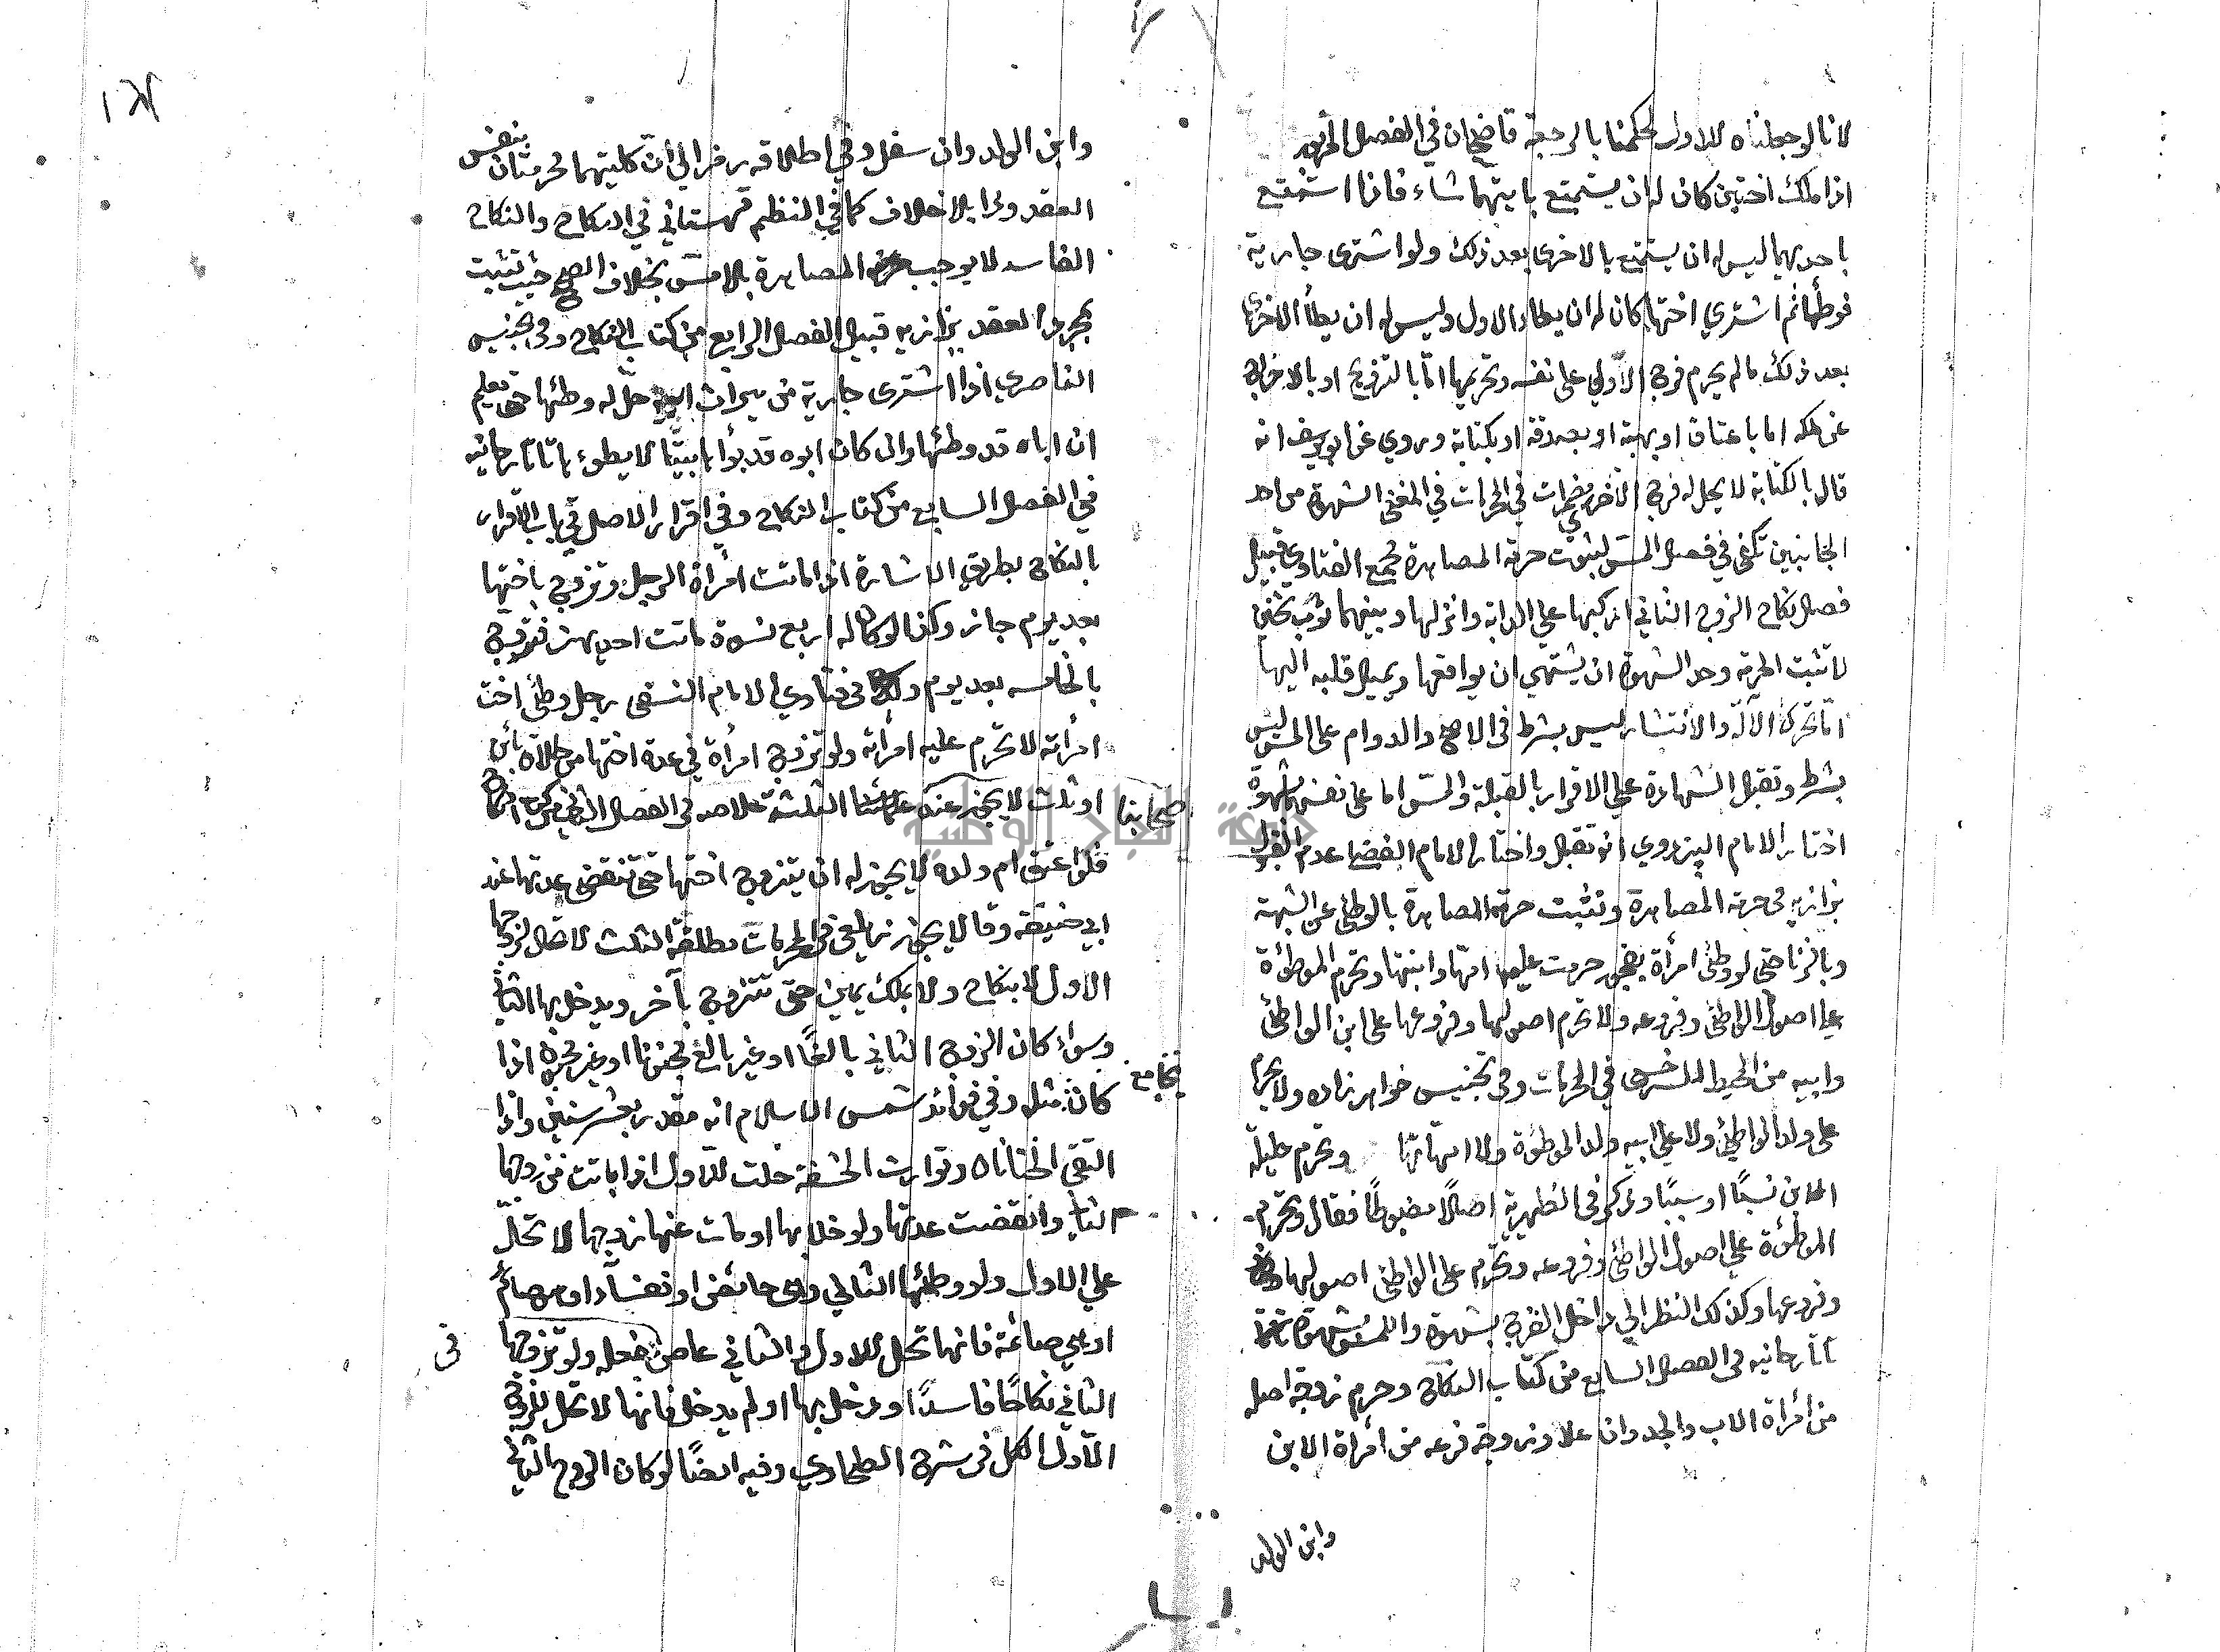 لانا لو جعلناه للاول لحكمنا بالرجعة قاضيخان في الفصل
اذا ملك اختين كان له ان يستمتع بايتهما شاء فاذا استمتع
باحديهما ليس له ان يستمتع بالاخرى بعد ذلك ولو اشترى جارية
فوطئها ثم اشتري اختها كان له ان يطا الاول وليس له ان يطأ الاخرى
بعد ذلك مالم يحرم فرج الاولي على نفسه وتحريمها امّا بالتزويج او بالاخراج
عن ملكه اما باعتاق او بهبة او بصدقة او بكتابة وروي عن ابويوسف انه
قال بالكتابة لا يحل له فرج الاخرى مضمرات في المحرمات في المغنى الشهوة من احد
الجانبين تكفي في فصل المسّ لثبوت حرمة المصاهرة مجمع الفتاوي قبيل
فصل نكاح الزوج الثاني اركبها على الدابة وانزلها وبينهما ثوب ثخين
لا تثبت الحرمة وحد الشهوة ان يشتهي ان يواقعها ويميل قلبه اليها
امّا تحرك الآلة والانتشار ليس بشرط في الاصح والدوام على المسّ ليس
بشرط وتقبل الشهادة علي الاقرار بالقبلة والمسّ اما على نفسهما بشهوة
اختار الامام البزدوي انه تقبل واختار الامام الفضلي عدم القبول
بزازيه في حرمة المصاهرة وتثبت حرمة المصاهرة بالوطئ عن الشبهة
وبالزنا حتى لو وطئ امرأة بفجور حرمت عليه امّها وابنتها وتحرم الموطؤة
علي اصول الواطئ وفروعه ولا تحرم اصولها وفروعها على ابن الواطئ
وابيه من المحيط للسرخسي في المحرمات وفي تجنيس خواهر زاده ولا يحرم
على ولد الواطئ ولا علي ابيه ولد الموطؤة ولا امهاتها وتحرم حليلة
الابن نسبًا او سببًا وذكر في الظهيرية اصلًا مضبوطًا فقال وتحرم
الموطؤة علي اصول الواطئ وفروعه وتحرم على الواطئ اصولها
وفروعها وكذلك النظر الي داخل الفرج بشهوة واللمس بشهوة
تاتارخانيه في الفصل السابع من كتاب النكاح وحرم زوجة اصله
من امرأة الاب والجد وان علا وزوجة فرعه من امرأة الابن
وابن الولد
وابن الولد وان سفل وفي اطلاقه رمز الي ان كليتهما محرمتان بنفس
العقد وهذا بلا خلاف كما في النظم قهستاني في النكاح والنكاح
الفاسد لا يوجب المصاهرة بلا مسّ بخلاف الصحيح حيث تثبت
بمجرد العقد بزازيه قبيل الفصل الرابع من كتاب النكاح وفي تجنيس
الناصري اذا اشترى جارية من ميراث ابيه حلّ له وطئها حتى يعلم
ان اباه قد وطئها وان كان ابوه قد بوّأها بيتًا لا يطوء ها تاتارخانيه
في الفصل السابع من كتاب النكاح وفي اقرار الاصل في باب الاقرار
بالنكاح بطريق الاشارة اذا ماتت امرأة الرجل وتزوج باختها
بعد يوم جاز وكذا لو كان له اربع نسوة ماتت احديهن فتزوج
بالخامسه بعد يوم وفي فتاوي الامام النسفى رجل وطئ اخت
امرأته لا تحرم عليه امرأته ولو تزوج امرأة في عدة اختها من طلاق بائن
او ثلث لا يجوز عند علمائنا الثلثة خلاصه في الفصل الثاني من كتاب النكاح
صحابنا
فلو اعتق ام ولده لا يجوز له ان يتزوج اختها حتى تنقضى عدتها عند
ابي حنيفة وقالا يجوز زيلعي في المحرمات مطلقة الثلث لا تحل لزوجها
الاول لا بنكاح ولا بملك يمين حتى تتزوج بآخر ويدخل بها الثاني
وسواء كان الزوج الثاني بالغًا او غير بالغ مجنونا او غير مجنون اذا
كان مثله وفي فوائد شمس الاسلام انه مقدر بعشر سنين واذا
يجامع
التقى الختانان وتوارت الحشفة حلت للاول اذا بانت من زوجها
الثاني وانقضت عدتها ولو خلا بها او مات عنها زوجها لا تحلّ
علي الاول ولو وطئها الثاني وهى حائض او نفساء او هو صائم
او هي صائمة فانها تحل للاول والثاني عاص بفعله ولو تزوجها
فى
الثاني نكاحًا فاسدًا ودخل بها او لم يدخل فانها لا تحل للزوج
الاول الكل في شرح الطحاوي وفيه ايضًا لو كان الزوج الثاني
جامعة النجاح الوطنية